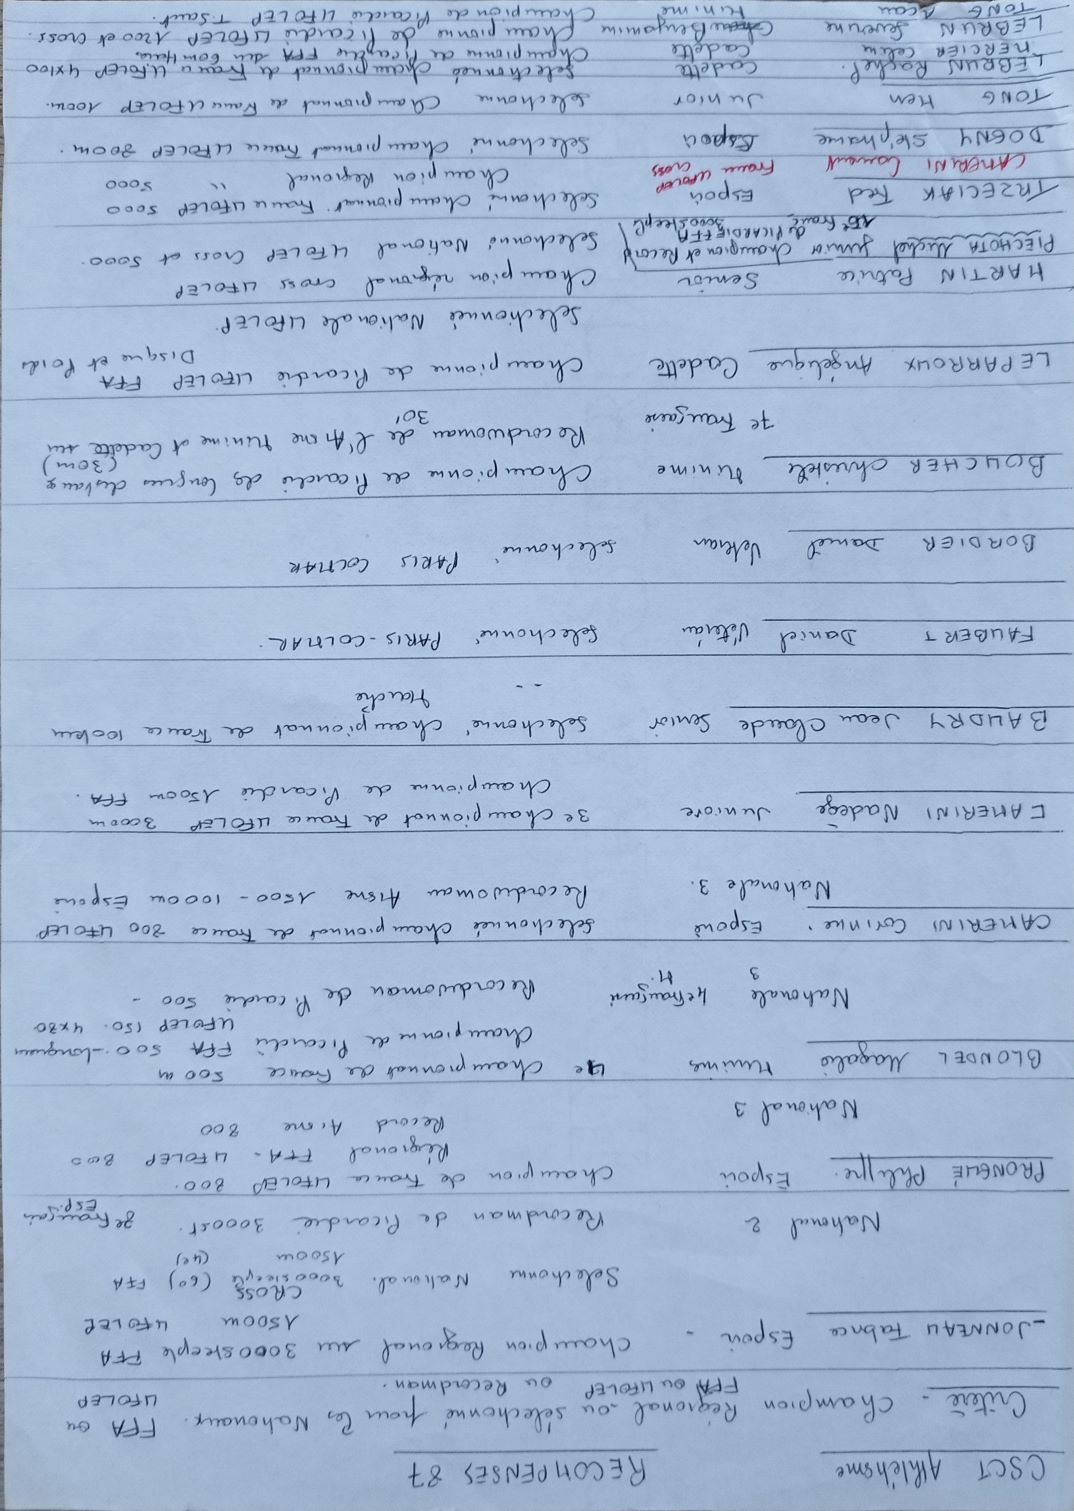 CSCT Athlétisme RECOMPENSES 87
Critère - Champion Régional ou sélectionné pour les Nationaux. FFA ou UFOLEP
FFA ou UFOLEP ou Recordman.
- JONNEAU Fabrice Espoir - Champion Regional sur 3000 steeple FFA
1500m UFOLEP
CROSS
Selectionné National. 3000 steeple (6e) FFA
1500m (4e)
National 2 Recordman de Picardie 3000st. 8e Français Esp.
PRONGUÉ Philippe. Espoir Champion de France UFOLEP 800.
Régional FFA - UFOLEP 800
National 3 Record Aisne 800
BLONDEL Magalie Minime 4e Championnat de France 500 m
Championne de Picardie FFA 500 - Longueur
UFOLEP 150. 4x80
Nationale 3 4e française M. Recordwoman de Picardie 500 -
CAMERINI Corinne. Espoir Selectionnée Championnat de France 800 UFOLEP
Nationale 3. Recordwoman Aisne 1500 - 1000m Espoir
CAMERINI Nadège Juniore 3e Championnat de France UFOLEP 3000m
Championne de Picardie 1500m FFA.
BAUDRY Jean Claude Senior Selectionné Championnat de France 100km
Marche
FAUBERT Daniel Vétéran Selectionné PARIS-COLMAR.
BORDIER Daniel Veteran selectionné PARIS COLMAR
BOUCHER Christèle Minime Championne de Picardie des longues distance (30m)
Recordwoman de l'Aisne Minime et Cadette sur 30'
7e Française
LEPARROUX Angélique Cadette Championne de Picardie UFOLEP FFA
Disque et Poids
Selectionnée Nationale UFOLEP.
MARTIN Patrice Senior Champion régional cross UFOLEP
PIECHOTA Michel Junior Champion et Record de PICARDIE FFA 3000 steeple Selectionné National UFOLEP Cross et 5000.
TRZECIAK Fred Espoir Selectionné Championnat France UFOLEP 5000
Champion Regional " 5000
CAMERINI Laurent France UFOLEP cross
DOGNY Stéphane Espoir Selectionné Championnat France UFOLEP 800m.
TONG Hen Junior Selectionné Championnat de France UFOLEP 100m.
LEBRUN Rachel. Cadette Selectionnée Championnat de France UFOLEP 4x100
MERCIER Celine Cadette Championne de Picardie FFA du 60m haie
LEBRUN Severine Benjamine Championne de Picardie UFOLEP 1200 et cross.
TONG Minime Champion de Picardie UFOLEP T. Saut.